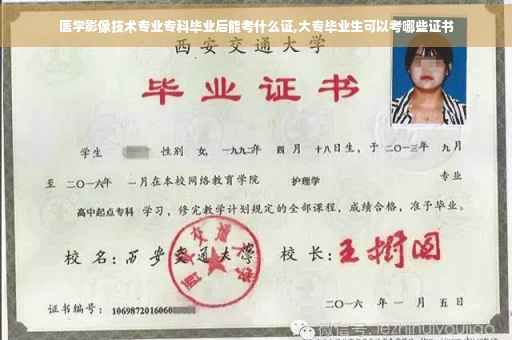 医学影像技术专业专科毕业后能考什么证,大专毕业生可以考哪些证书
西安交通大学
毕业证书
学生 性别 女, 一九九二年 四 月 十八日生, 于 二〇一三年 九月
至 二〇一六年 一月在本校网络教育学院 护理学 专业
高中起点专科 学习, 修完教学计划规定的全部课程, 成绩合格, 准予毕业。
校 名: 西安交通大学 校 长: 王树国
证书编号: 1069872016060
二〇一六 年 一 月 五 日
微信号: jezhinuiyoujiao